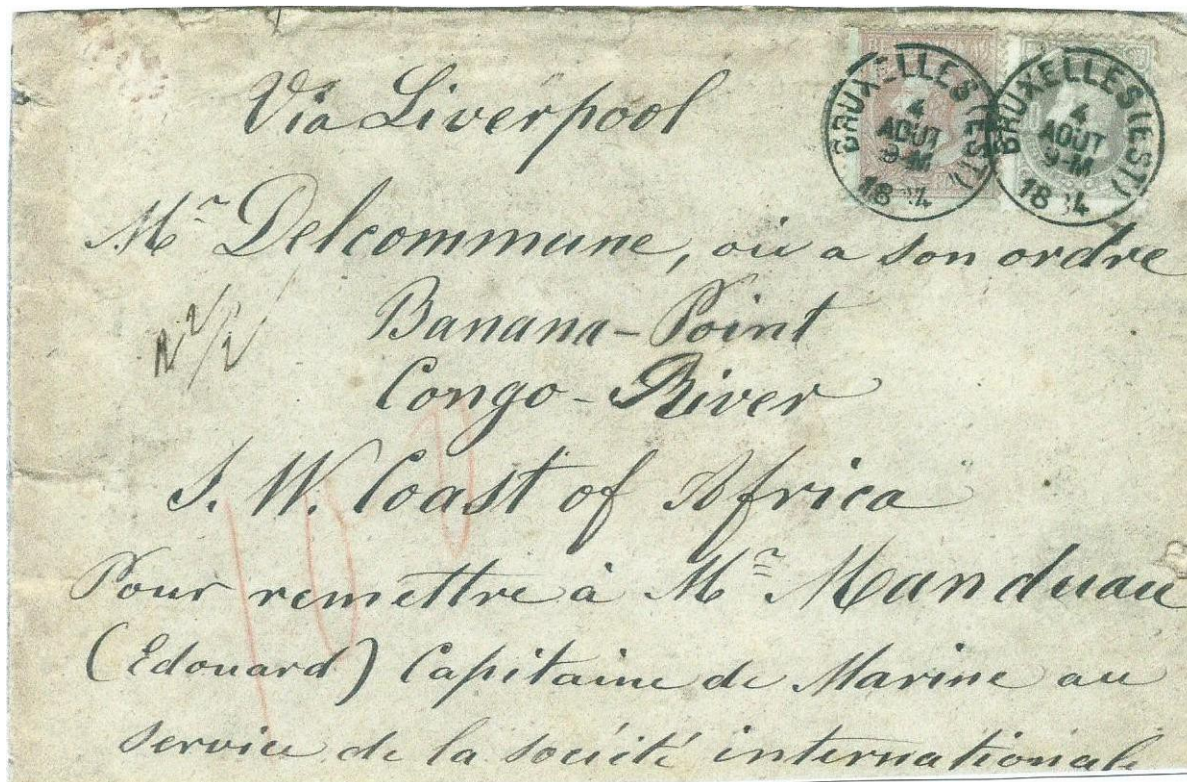 Via Liverpool
BRUXELLES (EST)
4
AOUT
9-M
BRUXELLES (EST)
4
AOUT
9-M
Mr Delcommune, ou a son ordre
Banana-Point
Congo-River
S. W. Coast of Africa
Pour remettre à Mr Manduau
(Edouard) Capitaine de Marine au
service de la société internationale